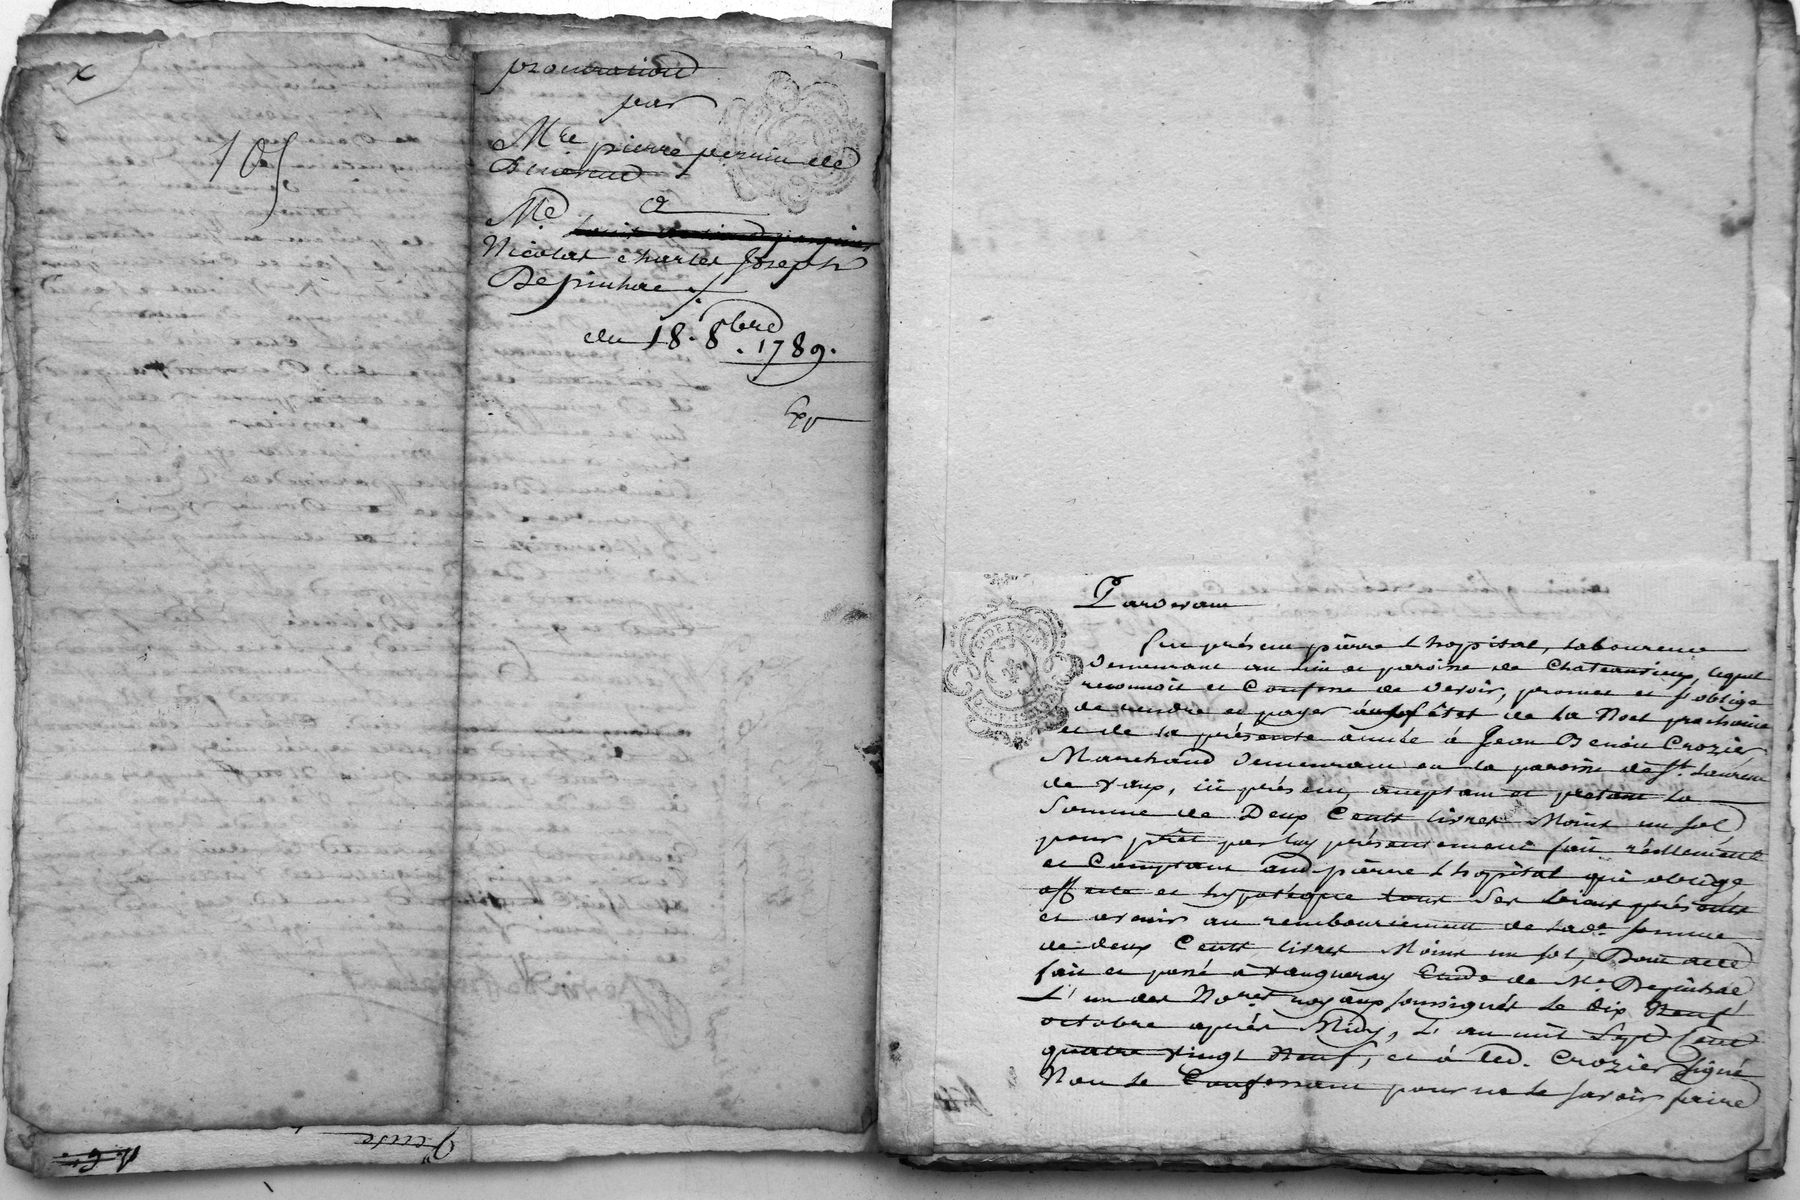 procuration
par
Mre pierre perrin de
Benevent
a
Me
Nicolas Charles Joseph
Depinhac
du 18. 8bre 1789.
105
Pardevant
fut présent pierre L'hopital, Laboureur
demeurant au lieu et paroisse de Chateauvieux, lequel
reconnoit et Confesse de devoir, promet et s'oblige
de rendre et payer aux fêtes de la Noel prochaine
et de la présente année à Jean Benoit Crozier
Marchand demeurant en la paroisse de St. Laurent
de Vaux, ici présent, acceptant et pretant la
Somme de Deux Cents livres Moins un sol
pour prêt par luy présentement fait réellement
et Comptant aud. pierre L'hopital qui oblige
affecte et hypotheque tous ses biens présents
et avenir au remboursement de lade. somme
de deux Cents livres Moins un sol, Dont acte
fait et passé à Vaugneray Etude de Me. Depinhac
L'un des Nores royaux soussignés le dix Neuf
octobre après Midy, L'an mil Sept Cent
quatre vingt Neuf, et à led. Crozier signé
Non le Confessant pour ne le savoir faire